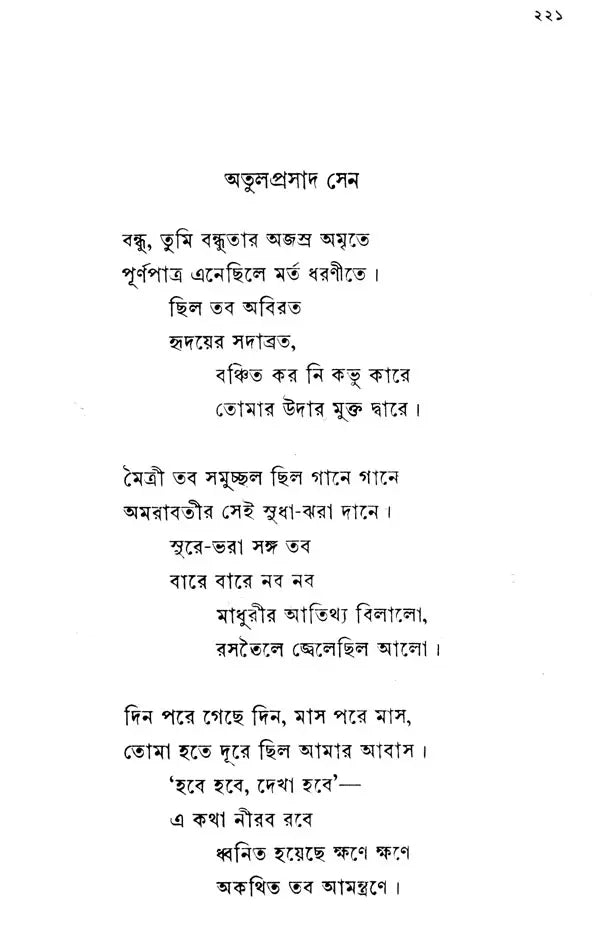 ২২১
অতুলপ্রসাদ সেন
বন্ধু, তুমি বন্ধুতার অজস্র অমৃতে
পূর্ণপাত্র এনেছিলে মর্ত ধরণীতে।
ছিল তব অবিরত
হৃদয়ের সদাব্রত,
বঞ্চিত কর নি কভু কারে
তোমার উদার মুক্ত দ্বারে।
মৈত্রী তব সমুচ্ছল ছিল গানে গানে
অমরাবতীর সেই সুধা-ঝরা দানে।
সুরে-ভরা সঙ্গ তব
বারে বারে নব নব
মাধুরীর আতিথ্য বিলালো,
রসতৈলে জ্বেলেছিল আলো।
দিন পরে গেছে দিন, মাস পরে মাস,
তোমা হতে দূরে ছিল আমার আবাস।
‘হবে হবে, দেখা হবে’—
এ কথা নীরব রবে
ধ্বনিত হয়েছে ক্ষণে ক্ষণে
অকথিত তব আমন্ত্রণে।